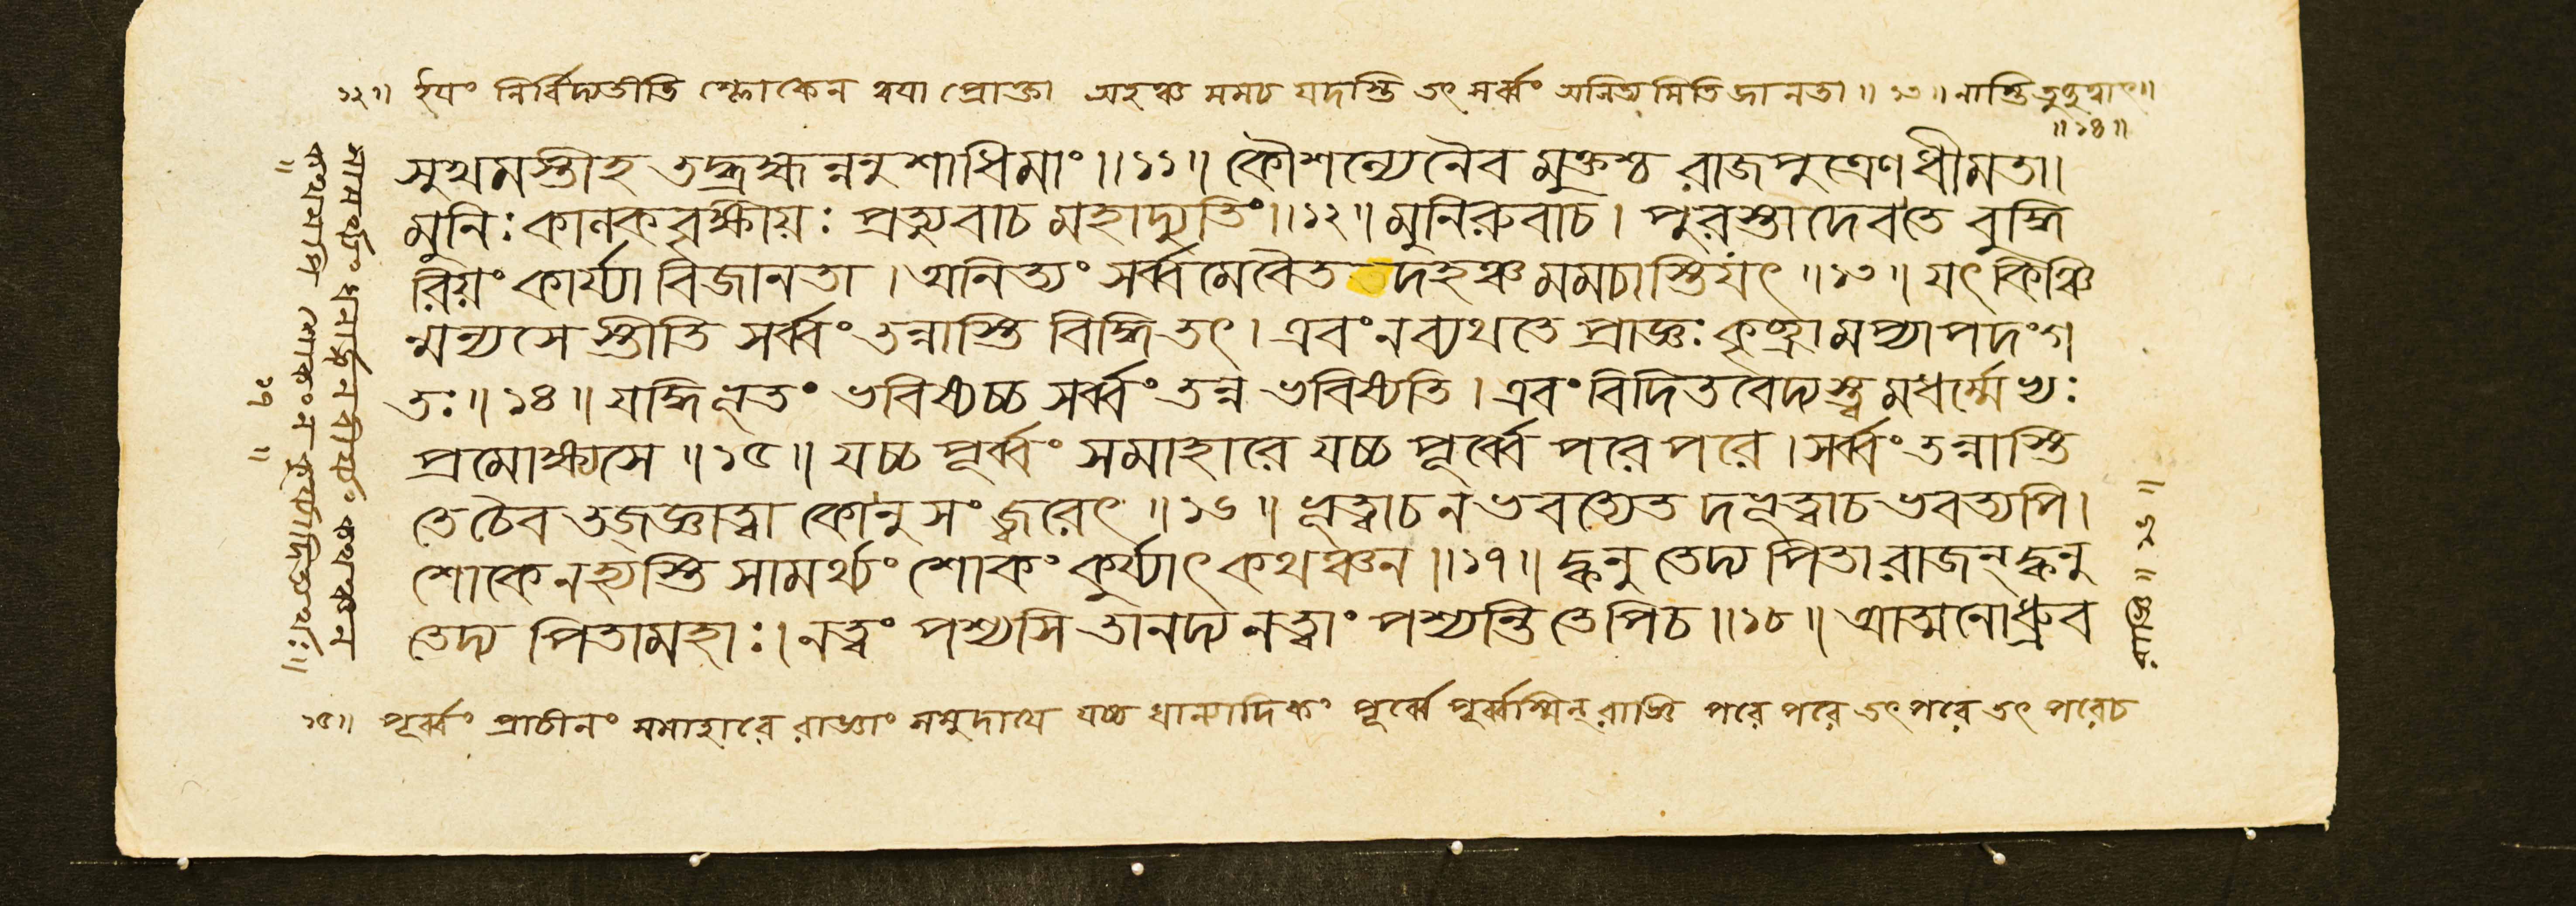 ১২॥ ইয়ং নির্বিদ্যতীতি শ্লোকেন ত্বয়া প্রোক্তা অহঞ্চ মমচ যদস্তি তৎ সর্ব্বং অনিত্যমিতি জানতা॥ ১৩॥ নাস্তি
॥১৪॥
সুখমস্তীহ তদ্ব্রহ্মন্ননুশাধিমাং॥১১॥ কৌশল্যেনৈব মুক্তস্তু রাজপুত্রেণধীমতা।
মুনিঃকালকবৃক্ষীয়ঃ প্রত্যুবাচ মহাদ্যুতিং॥১২॥ মুনিরুবাচ। পুরস্তাদেবতে বুদ্ধি
রিয়ং কার্য্যা বিজানতা। অনিত্যং সর্ব্বমেবৈতত্তদহঞ্চ মমচাস্তিযৎ॥১৩॥ যৎকিঞ্চি
ন্মন্যসে স্তীতি সর্ব্বং তন্নাস্তি বিদ্ধিতৎ। এবংনব্যথতে প্রাজ্ঞঃকৃচ্ছ্রামপ্যাপদংগ
তঃ॥১৪॥ যদ্ধিভূতং ভবিষ্যচ্চ সর্ব্বং তন্ন ভবিষ্যতি। এবংবিদিতবেদ্যস্ত্বমধর্ম্মেভ্যঃ
প্রমোক্ষ্যসে॥১৫॥ যচ্চ পূর্ব্বং সমাহারে যচ্চ পূর্ব্বে পরেপরে। সর্ব্বং তন্নাস্তি
তেচৈব তজ্জ্ঞাত্বা কোনুসংজ্বরেৎ॥১৬॥ ভূত্বাচনভবত্যেত দভূত্বাচভবত্যপি।
শোকেনহ্যস্তি সামর্থ্যং শোকং কুর্য্যাৎকথঞ্চন॥১৭॥ ক্বনু তেদ্য পিতারাজন্ ক্বনু
তেদ্য পিতামহাঃ। নত্বং পশ্যসি তানদ্য নত্বাং পশ্যন্তি তেপিচ॥১৮॥ আত্মনোধ্রুব
১৫॥ পূর্ব্বং প্রাচীনং সমাহারে রাজ্ঞাং সমুদায়ে যচ্চ ধান্যাদিকং পূর্ব্বে পূর্ব্বস্মিন্ রাজ্ঞি পরে পরে তৎপরে তৎ পরেচ
সামর্থ্যং
কথমপি শোকং ন কুর্য্যাদিত্যর্থঃ॥
১৭॥